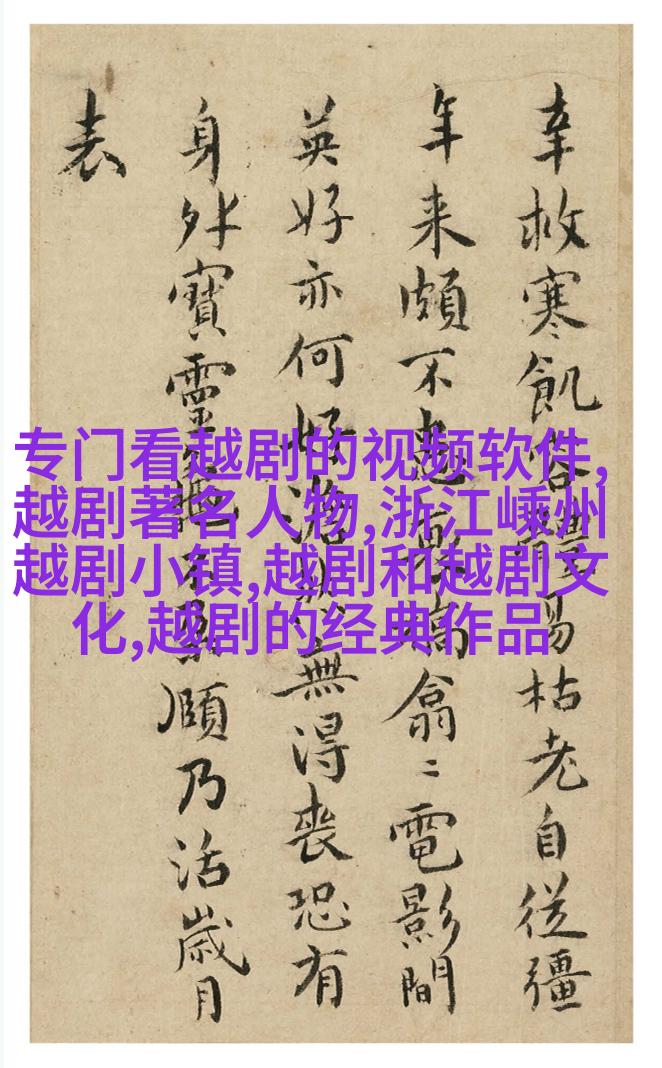 幸救寒飢易枯老自從彊
年来頗不槁翕〻電影間
英好亦何好無得喪恐有
身外寶靈頤乃活歲月
表
专门看越剧的视频软件,
越剧著名人物,浙江嵊州
越剧小镇,越剧和越剧文
化,越剧的经典作品